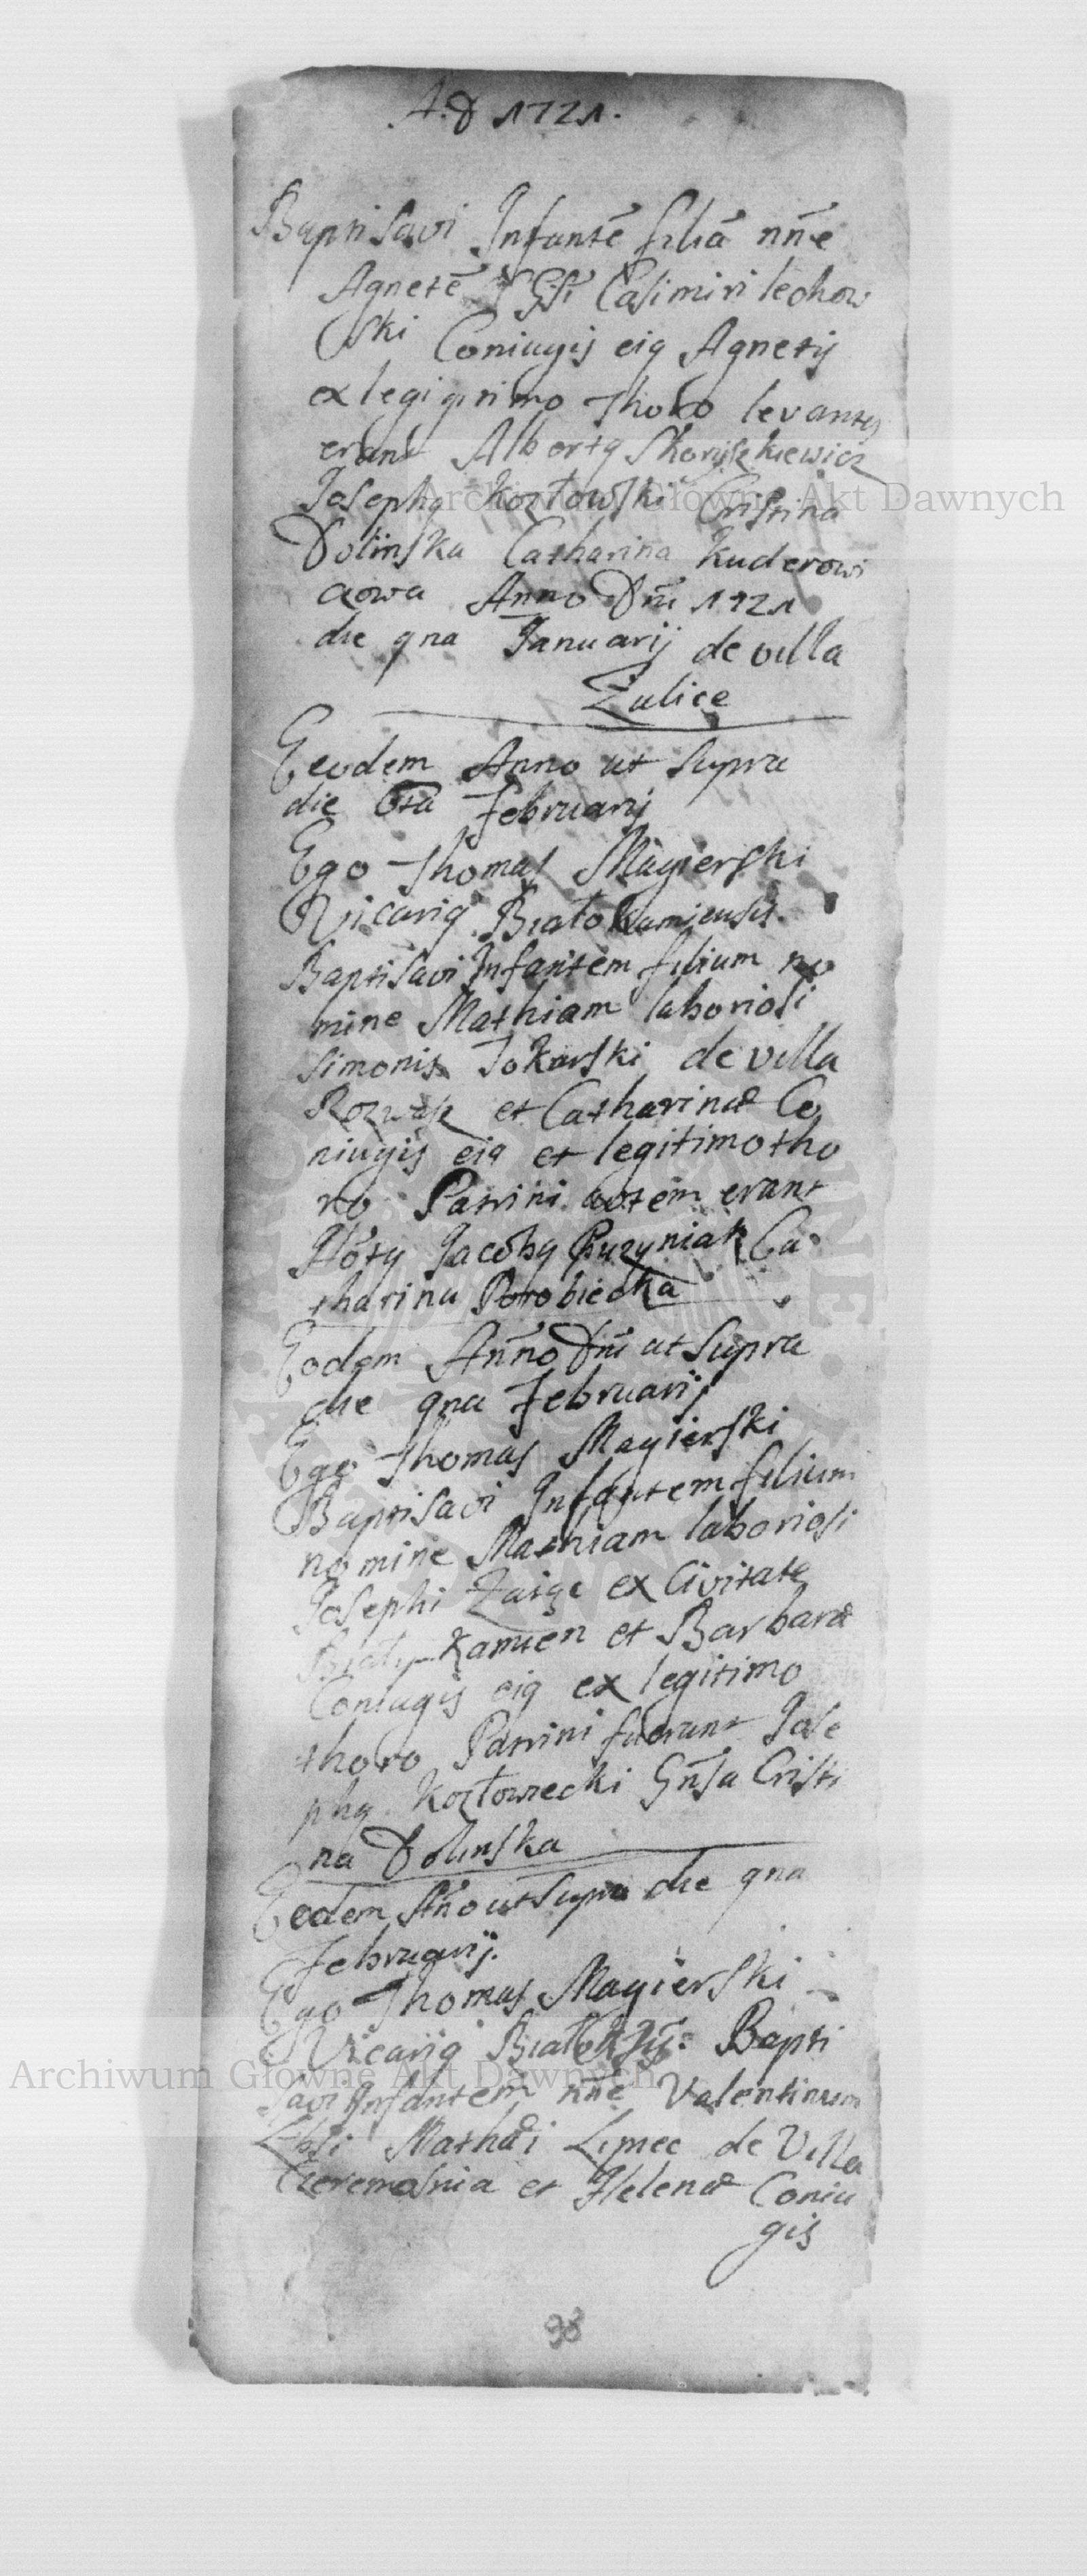 A.D 1721.
Baptisavi Infantē filiā nn̄e
Agnetē Gsi Casimiri lechow
ski Coniugis eiq Agnetis
ex legiptimo thoro levantes
erant Albertq
Josephq Kozłowski Cristina
Dolinska Catharina Kuderowi
czowa Anno Dni 1721
die qna Januarij de villa
Zulice
Eeodem Anno ut supra
die 6ta Februarij
Ego Thomas Magierski
Vicariq Białokamiensis
Baptisavi Infantem filium no
mine Mathiam laboriosi
Simonis Tokarski de villa
et Catharinæ Co
niugis eiq et legitimo tho
ro Patrini autem erant
Jacobq Puzyniak Ca
tharina Porobiecka
Eodem Anno Dni ut supra
die qna Februarij
Ego Thomas Magierski
Baptisavi Infantem filium
nomine Mathiam laboriosi
Josephi ex Civitate
Biały Kamien et Barbaræ
Coniugis eiq ex legitimo
thoro Patrini fuerunt Jose
phq Kozłowiecki Gn̄sa Cristi
na Dolinska
Eedem An̄o ut supra die qna
Februarij.
Ego Thomas Magierski
Vicariq Bapti
savi Infantem nn̄e Valentinum
Lbsi Mathæi Lipiec de Villa
Czeremosnia et Helenæ Coniu
gis
98
Archiwum Główne Akt Dawnych
Archiwum Główne Akt Dawnych